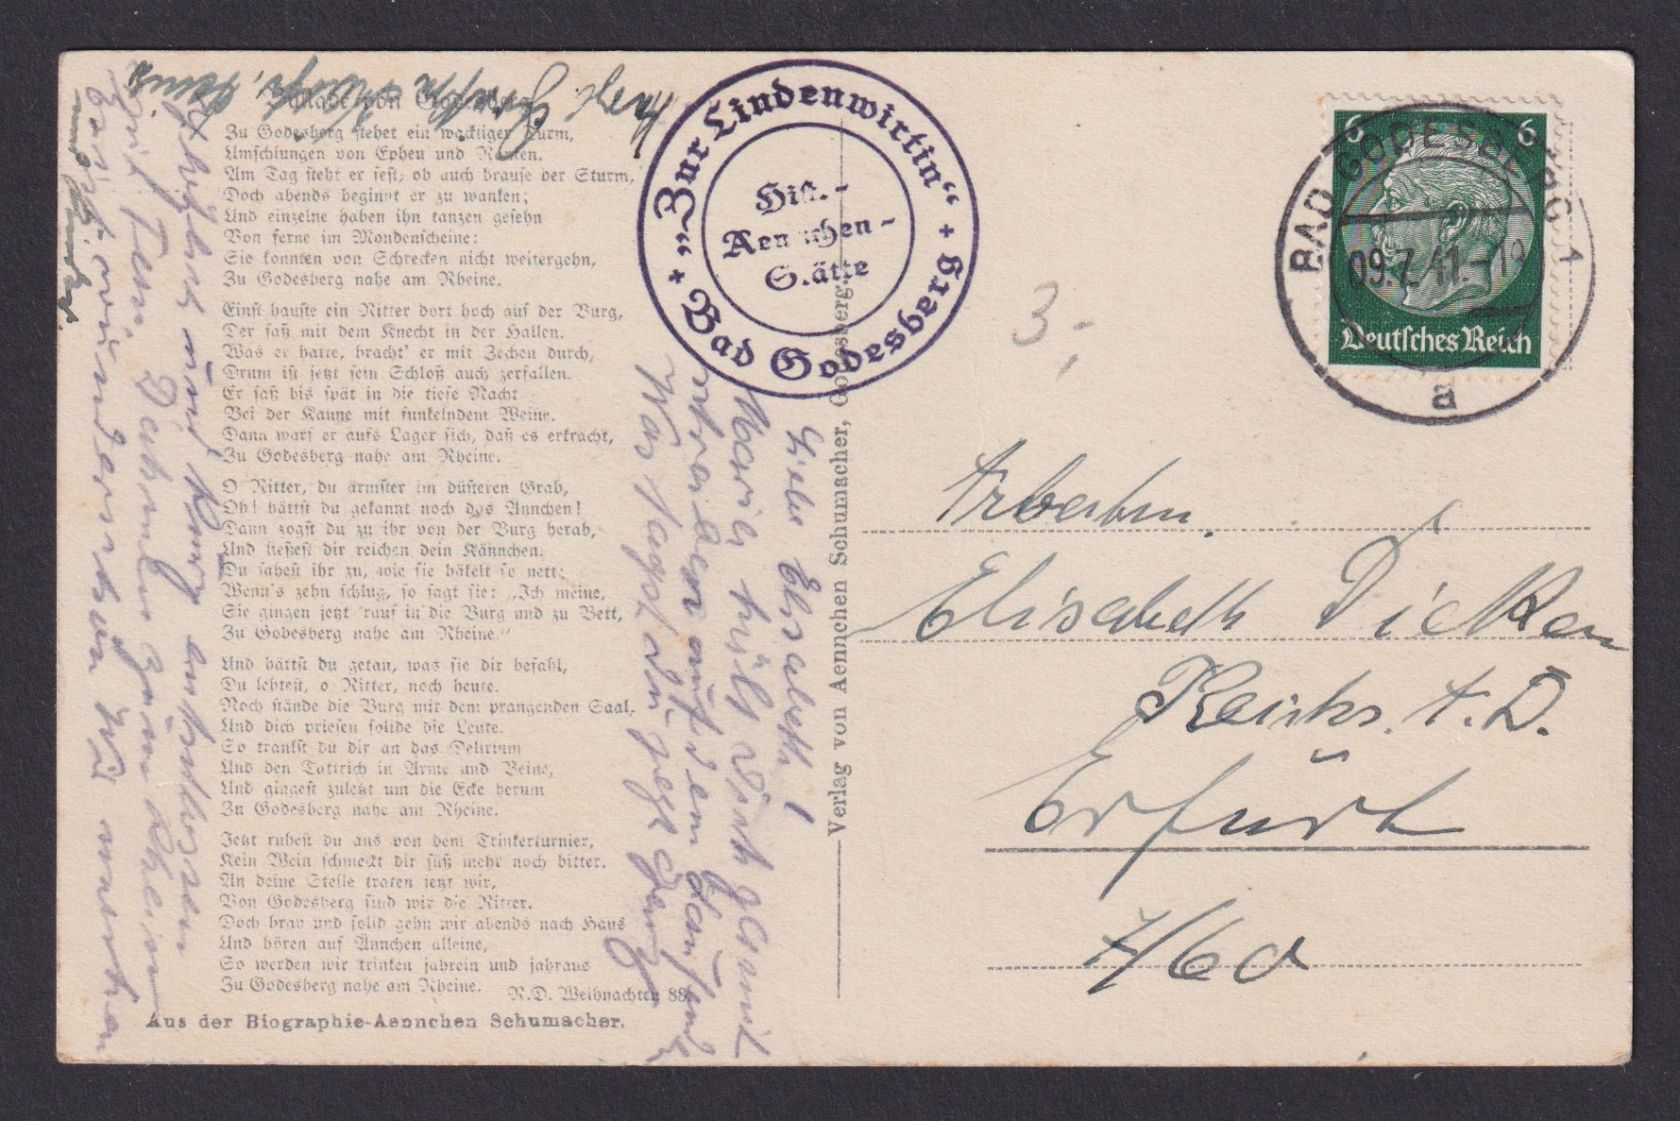 Ballade von Godesberg
Zu Godesberg stehet ein wackliger Turm,
Umschlungen von Epheu und Ranken.
Am Tag steht er fest, ob auch brause der Sturm,
Doch abends beginnt er zu wanken;
Und einzelne haben ihn tanzen gesehn
Von ferne im Mondenscheine:
Sie konnten von Schrecken nicht weitergehn,
Zu Godesberg nahe am Rheine.
Einst hauste ein Ritter dort hoch auf der Burg,
Der saß mit dem Knecht in der Hallen.
Was er hatte, bracht' er mit Zechen durch,
Drum ist jetzt sein Schloß auch zerfallen.
Er saß bis spät in die tiefe Nacht
Bei der Kanne mit funkelndem Weine.
Dann warf er aufs Lager sich, daß es erkracht,
Zu Godesberg nahe am Rheine.
O Ritter, du ärmster im düsteren Grab,
Oh! hättst du gekannt noch das Ännchen!
Dann zogst du zu ihr von der Burg herab,
Und ließest dir reichen dein Kännchen.
Du sahest ihr zu, wie sie häkelt so nett;
Wenn's zehn schlug, so sagt sie: „Ich meine,
Sie gingen jetzt 'rauf in die Burg und zu Bett,
Zu Godesberg nahe am Rheine."
Und hättst du getan, was sie dir befahl,
Du lebtest, o Ritter, noch heute.
Noch stände die Burg mit dem prangenden Saal,
Und dich priesen solide die Leute.
So trankst du dir an das Delirium
Und den Tattrich in Arme und Beine,
Und gingest zuletzt um die Ecke herum
Zu Godesberg nahe am Rheine.
Jetzt ruhest du aus von dem Trinkerturnier,
Kein Wein schmeckt dir süß mehr noch bitter.
An deine Stelle traten jetzt wir,
Von Godesberg sind wir die Ritter.
Doch brav und solid gehn wir abends nach Haus
Und hören auf Ännchen alleine,
So werden wir trinken jahrein und jahraus
Zu Godesberg nahe am Rheine.
R.D. Weihnachten 88
Aus der Biographie-Aennchen Schumacher.
Liebe Elsabeth!
Marie hält Dich somit
wieder auf dem Laufend
Was sagst du jetzt
kurz entschlossen
zum Rhein
Verlag von Aennchen Schumacher, Godesberg.
„Zur Lindenwirtin" + Bad Godesberg +
Hist.-
Aennchen-
Stätte
3,-
6 6
Deutsches Reich
BAD GODESBERG 1
09.7.41.-19
a
Arbeitm.
Elisabeth Dicken
Reichs. A. D.
Erfurt
7/60